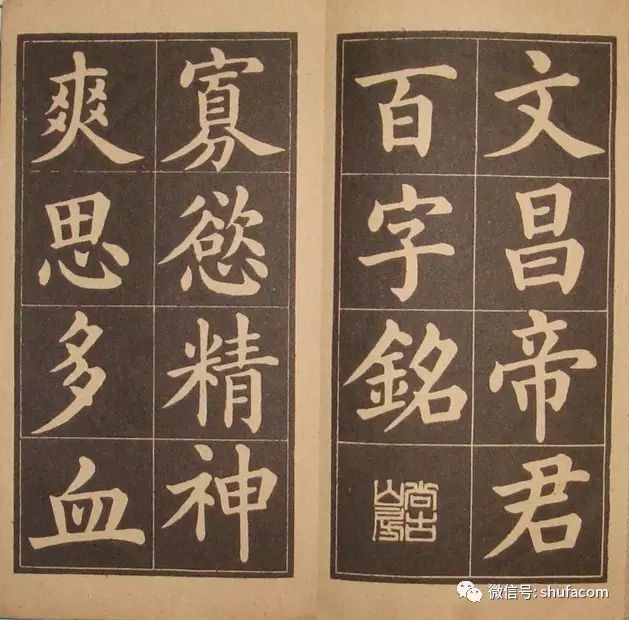 文昌帝君
百字銘
尚古山房
寡慾精神
爽思多血
微信号: shufacom